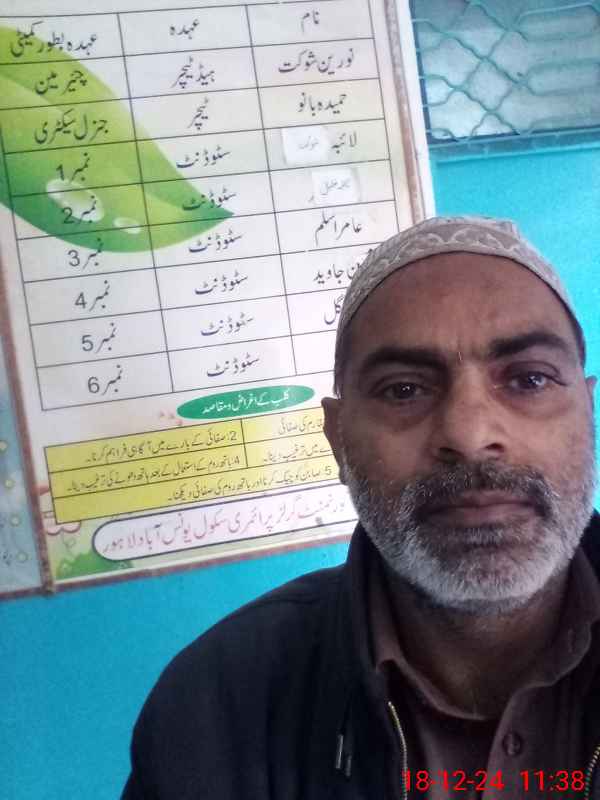 نام عہدہ عہدہ بطور کمیٹی
نورین شوکت ہیڈ ٹیچر چیئر مین
حمیدہ بانو ٹیچر جنرل سیکٹری
لائبہ شوکت سٹوڈنٹ نمبر 1
سٹوڈنٹ نمبر 2
عامر اسلم سٹوڈنٹ نمبر 3
جاوید سٹوڈنٹ نمبر 4
گل سٹوڈنٹ نمبر 5
سٹوڈنٹ نمبر 6
کلب کے اغراض و مقاصد
کی صفائی 2: صفائی کے بارے میں آگاہی فراہم کرنا۔
میں ترغیب دینا۔ 4: باتھ روم کے استعمال کے بعد ہاتھ دھونے کی ترغیب دینا۔
5: صابن کو چیک کرنا اور باتھ روم کی صفائی دیکھنا۔
گورنمنٹ گرلز پرائمری سکول یونس آباد لاہور
18-12-24 11:38